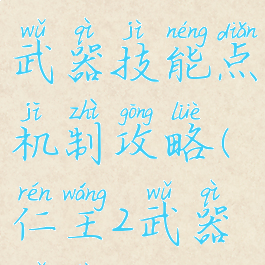 wǔ qì jì néng diǎn
武器技能点
jī zhì gōng lüè
机制攻略(
rén wáng wǔ qì
仁王2武器